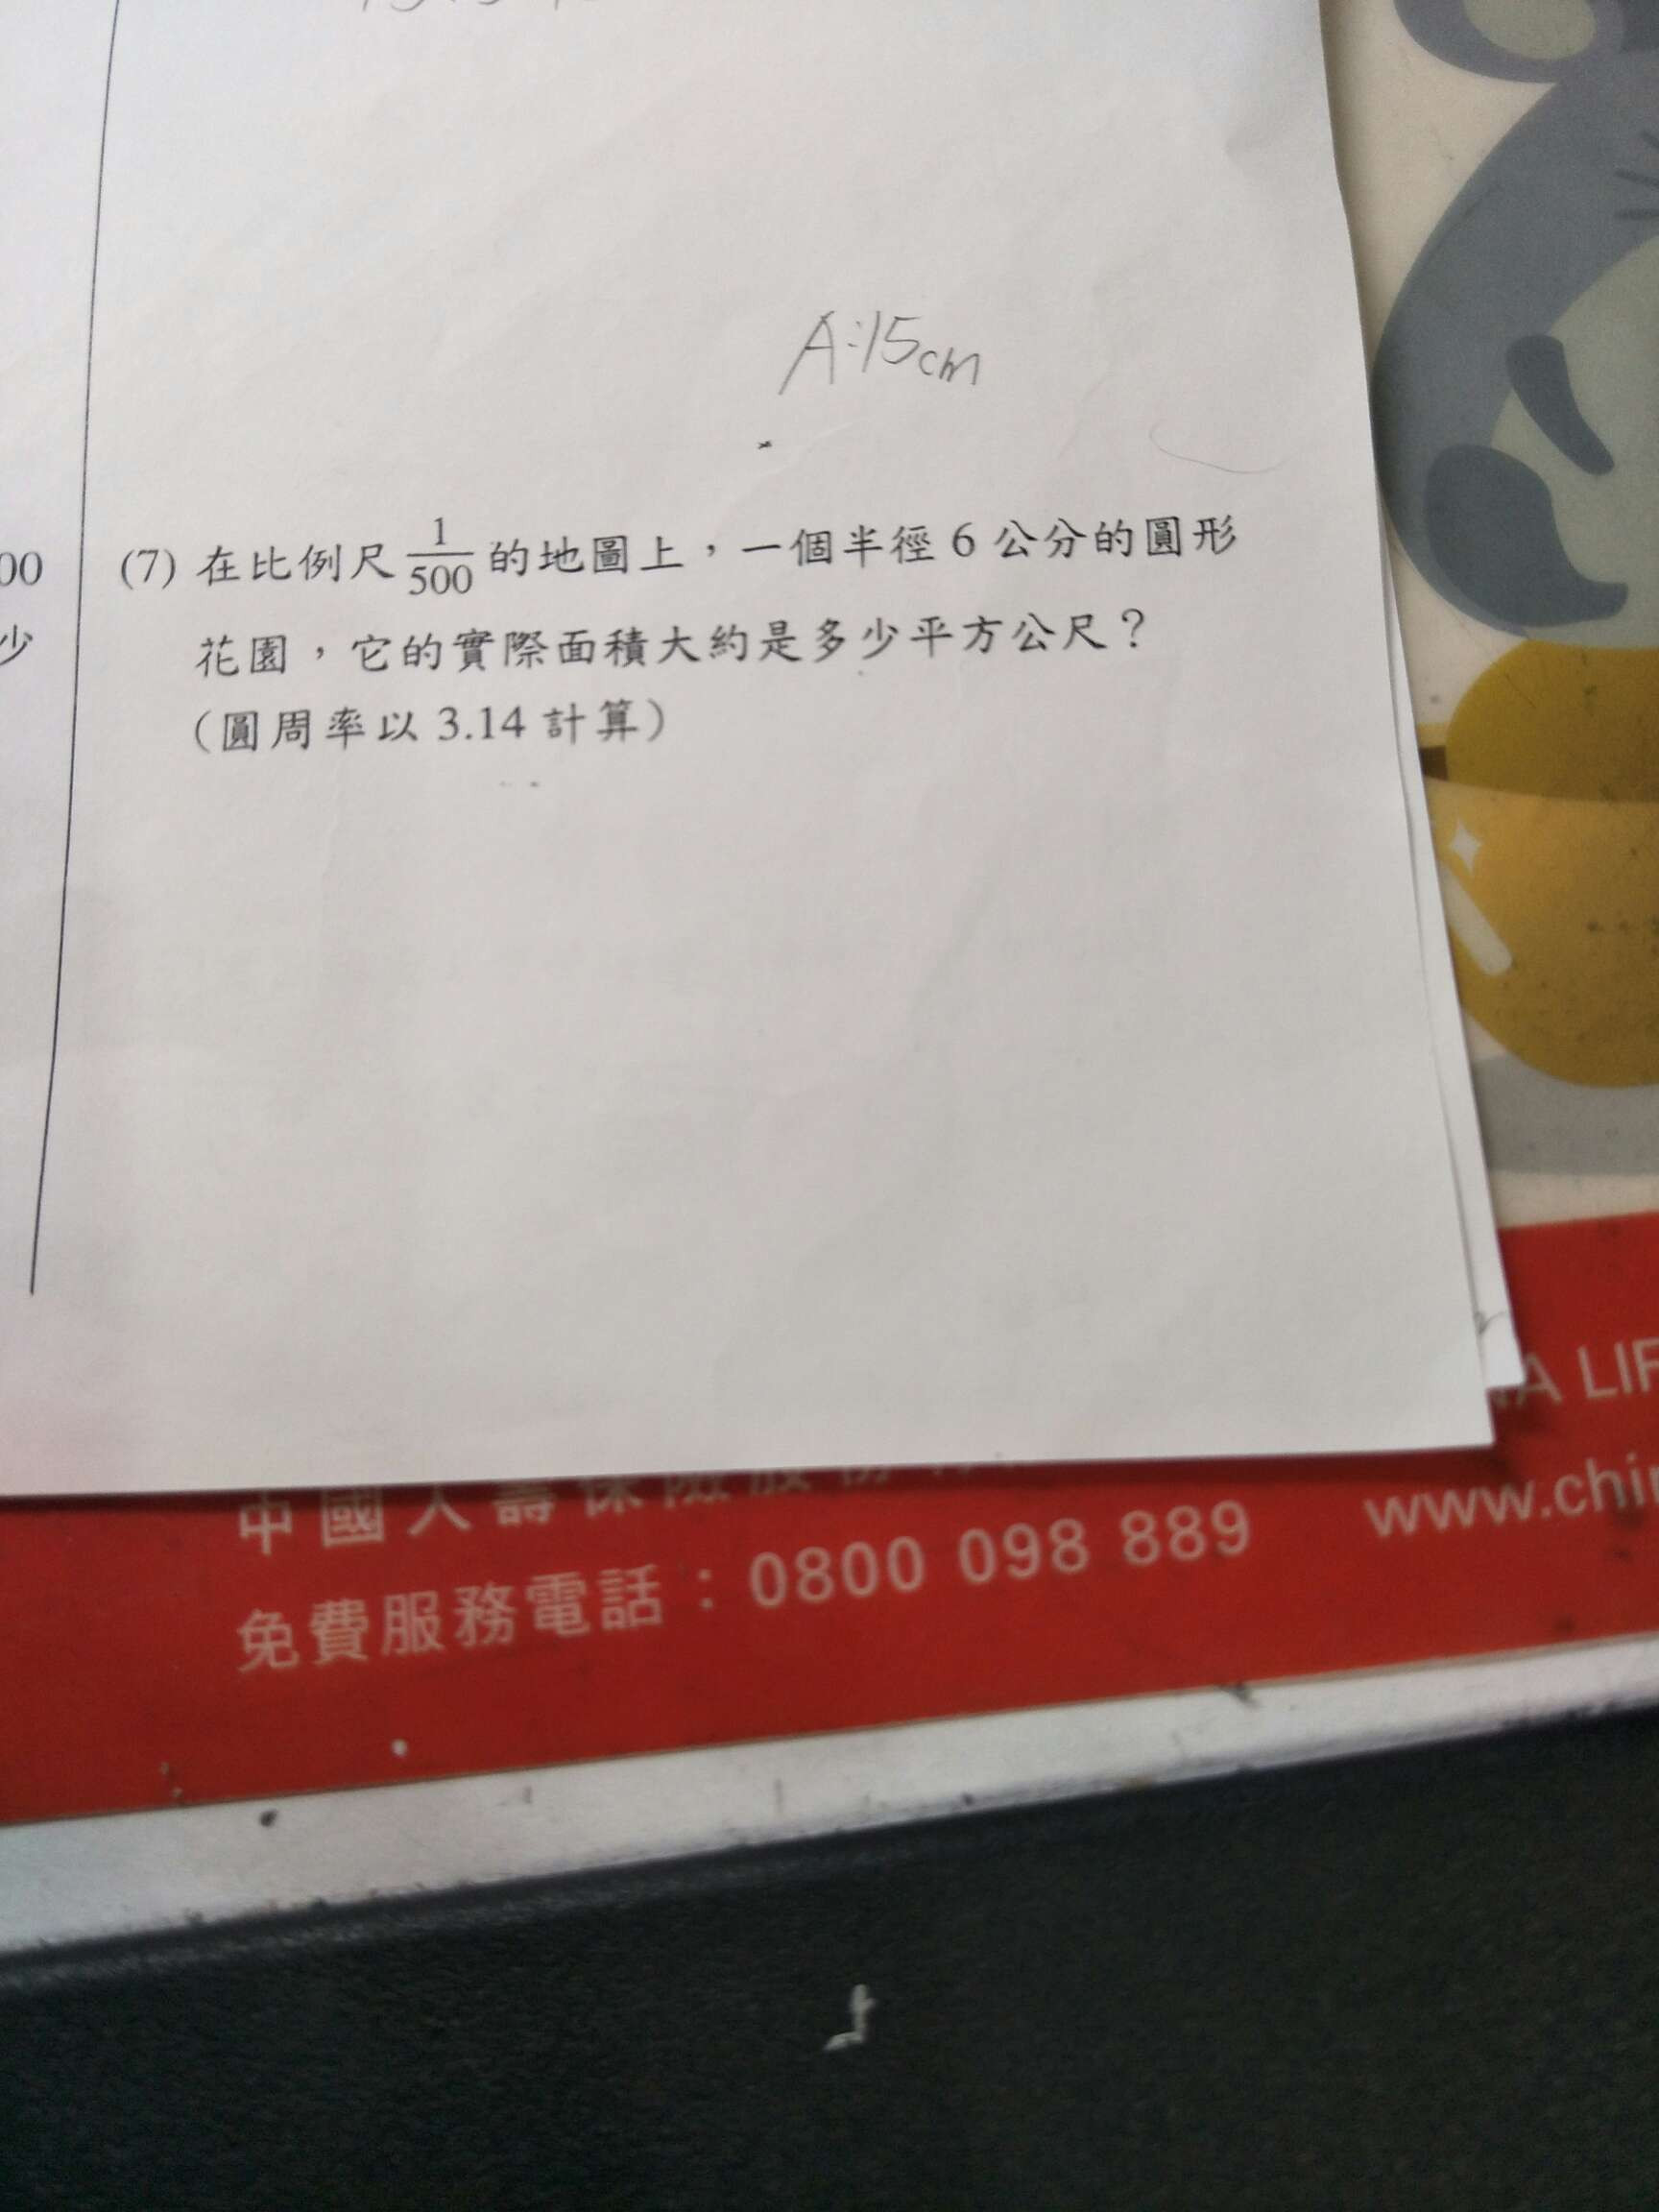 A:15cm
00
少
(7) 在比例尺 1/500 的地圖上，一個半徑 6 公分的圓形
花園，它的實際面積大約是多少平方公尺？
（圓周率以 3.14 計算）
A LIF
中國人壽保險股份
www.chin
免費服務電話：0800 098 889